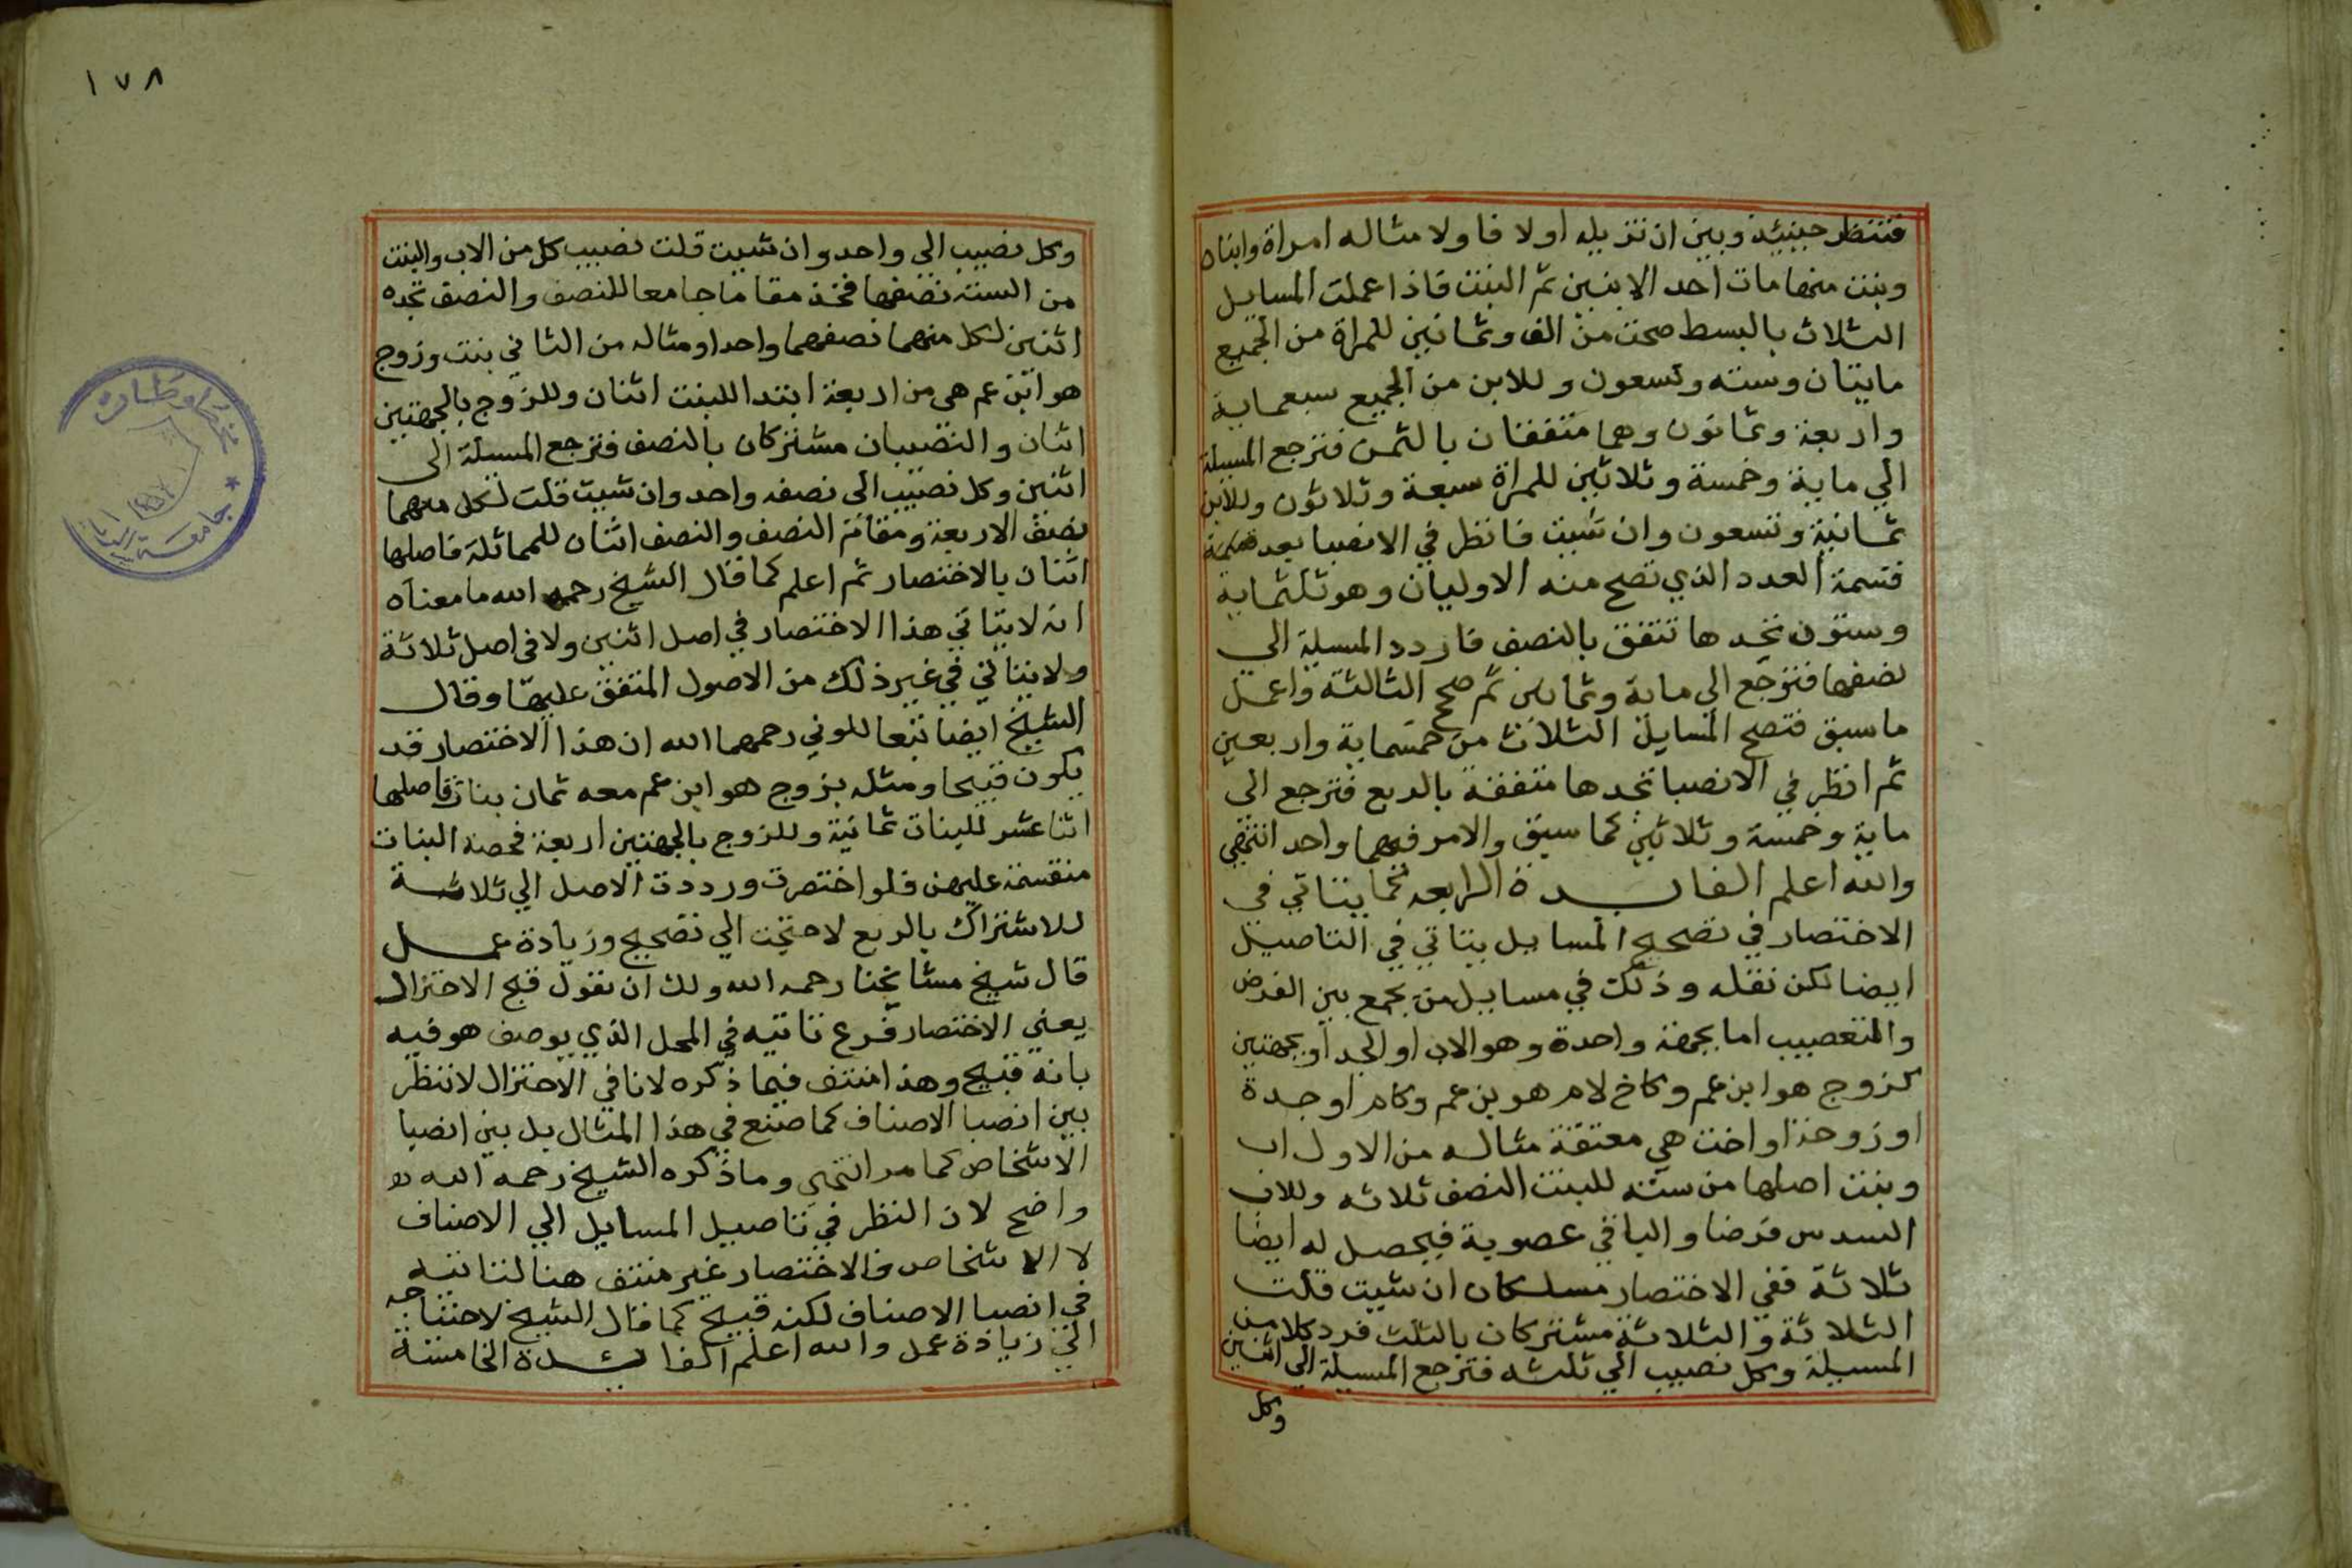 فتنظر حينيئذ وبين ان تزيله اولا فاولا مثاله امراة وابنان
وبنت منها مات احد الابنين ثم البنت فاذا عملت المسايل
الثلاث بالبسط صحت من الف وثمانين للمراة من الجميع
مايتان وسته وتسعون وللابن من الجميع سبعماية
واربعة وثمانون وهما متفقان بالثمن فترجع المسيلة
الي ماية وخمسة وثلاثين للمراة سبعة وثلاثون وللابن
ثمانية وتسعون وان شيت فانظر في الانصبا بعد
قسمة العدد الذي تصح منه الاوليان وهو ثلثماية
وستون تجدها تتفق بالنصف فاردد المسيلة الى
نصفها فترجع الي ماية وثمانين ثم صحح الثالثة واعمل
ما سبق فتصح المسايل الثلاث من خمسماية واربعين
ثم انظر في الانصبا تجدها متفقة بالربع فترجع الى
ماية وخمسة وثلاثين كما سبق والامر فيهما واحد انتهي
والله اعلم الفايدة الرابعه كما يتاتي في
الاختصار في تصحيح المسايل يتاتي في التاصيل
ايضا لكن نقله وذلك في مسايل من يجمع بين الفرض
والتعصيب اما بجهة واحدة وهو الاب او الجد او بجهتين
كزوج هو ابن عم وكاخ لام هو بن عم وكام او جدة
او زوجة او اخت هي معتقة مثاله من الاول اب
وبنت اصلها من سته للبنت النصف ثلاثه وللاب
السدس فرضا والباقي عصوبة فيحصل له ايضا
ثلاثة ففي الاختصار مسلكان ان شيت قلت
الثلاثة والثلاثة مشتركان بالثلث فرد كلا من
المسيلة وكل نصيب الي ثلثه فترجع المسيلة الي اثنين
وكل
١٧٨
وكل نصيب الى واحد وان شيت قلت نصيب كل من الاب والبنت
من الستة نصفها فخذ مقاما جامعا للنصف والنصف تجده
اثنين لكل منهما نصفهما واحدا ومثاله من الثاني بنت وزوج
هو ابن عم هي من اربعة ابتدا للبنت اثنان وللزوج بالجهتين
اثنان والنصيبان مشتركان بالنصف فترجع المسيلة الى
اثنين وكل نصيب الى نصفه واحد وان شيت قلت لكل منهما
نصف الاربعة ومقام النصف والنصف اثنان للمماثلة فاصلها
اثنان بالاختصار ثم اعلم كما قال الشيخ رحمه الله ما معناه
انه لا يتاتي هذا الاختصار في اصل اثنين ولا فى اصل ثلاثة
ولا يتاتي في غير ذلك من الاصول المتفق عليها وقال
الشيخ ايضا تبعا للوني رحمهما الله ان هذا الاختصار قد
يكون قبيحا ومثله بزوج هو ابن عم معه ثمان بنات فاصلها
اثنا عشر للبنات ثمانية وللزوج بالجهتين اربعة فحصة البنات
منقسمة عليهن فلو اختصرت ورددت الاصل الي ثلاثة
للاشتراك بالربع لاحتجت الي تصحيح وزيادة عمل
قال شيخ مشايخنا رحمه الله ولك ان تقول قبح الاختزال
يعني الاختصار فرع تاتيه في المحل الذي يوصف هو فيه
بانه قبيح وهذا منتف فيما ذكره لانا في الاختزال لا ننظر
بين انصبا الاصناف كما صنع في هذا المثال بل بين انصبا
الاشخاص كما مر انتهي وما ذكره الشيخ رحمه الله
واضح لان النظر في تاصيل المسايل الي الاصناف
لا الاشخاص فالاختصار غير منتف هنا لتاتيه
في انصبا الاصناف لكنه قبيح كما قال الشيخ لاحتياجه
الي زيادة عمل والله اعلم الفايدة الخامسة